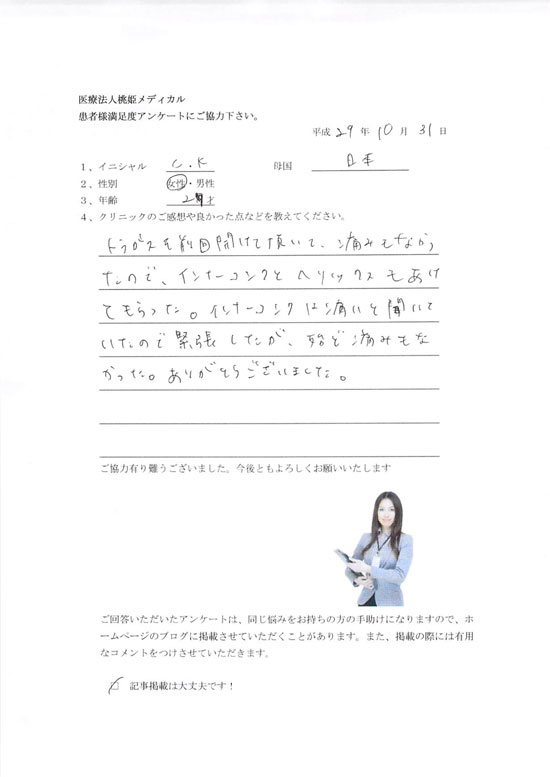 医療法人桃姫メディカル
患者様満足度アンケートにご協力下さい。
平成 29 年 10 月 31 日
1、イニシャル C.K 母国 日本
2、性別 女性・男性
3、年齢 才
4、クリニックのご感想や良かった点などを教えてください。
トラガスを前回開けて頂いて、痛みもなかっ
たので、インナーコンクとヘリックスもあけ
てもらった。インナーコンクは痛いと聞いて
いたので緊張したが、殆ど痛みもな
かった。ありがとうございました。
ご協力有り難うございました。今後ともよろしくお願いいたします
ご回答いただいたアンケートは、同じ悩みをお持ちの方の手助けになりますので、ホ
ームページのブログに掲載させていただくことがあります。また、掲載の際には有用
なコメントをつけさせていただきます。
記事掲載は大丈夫です！